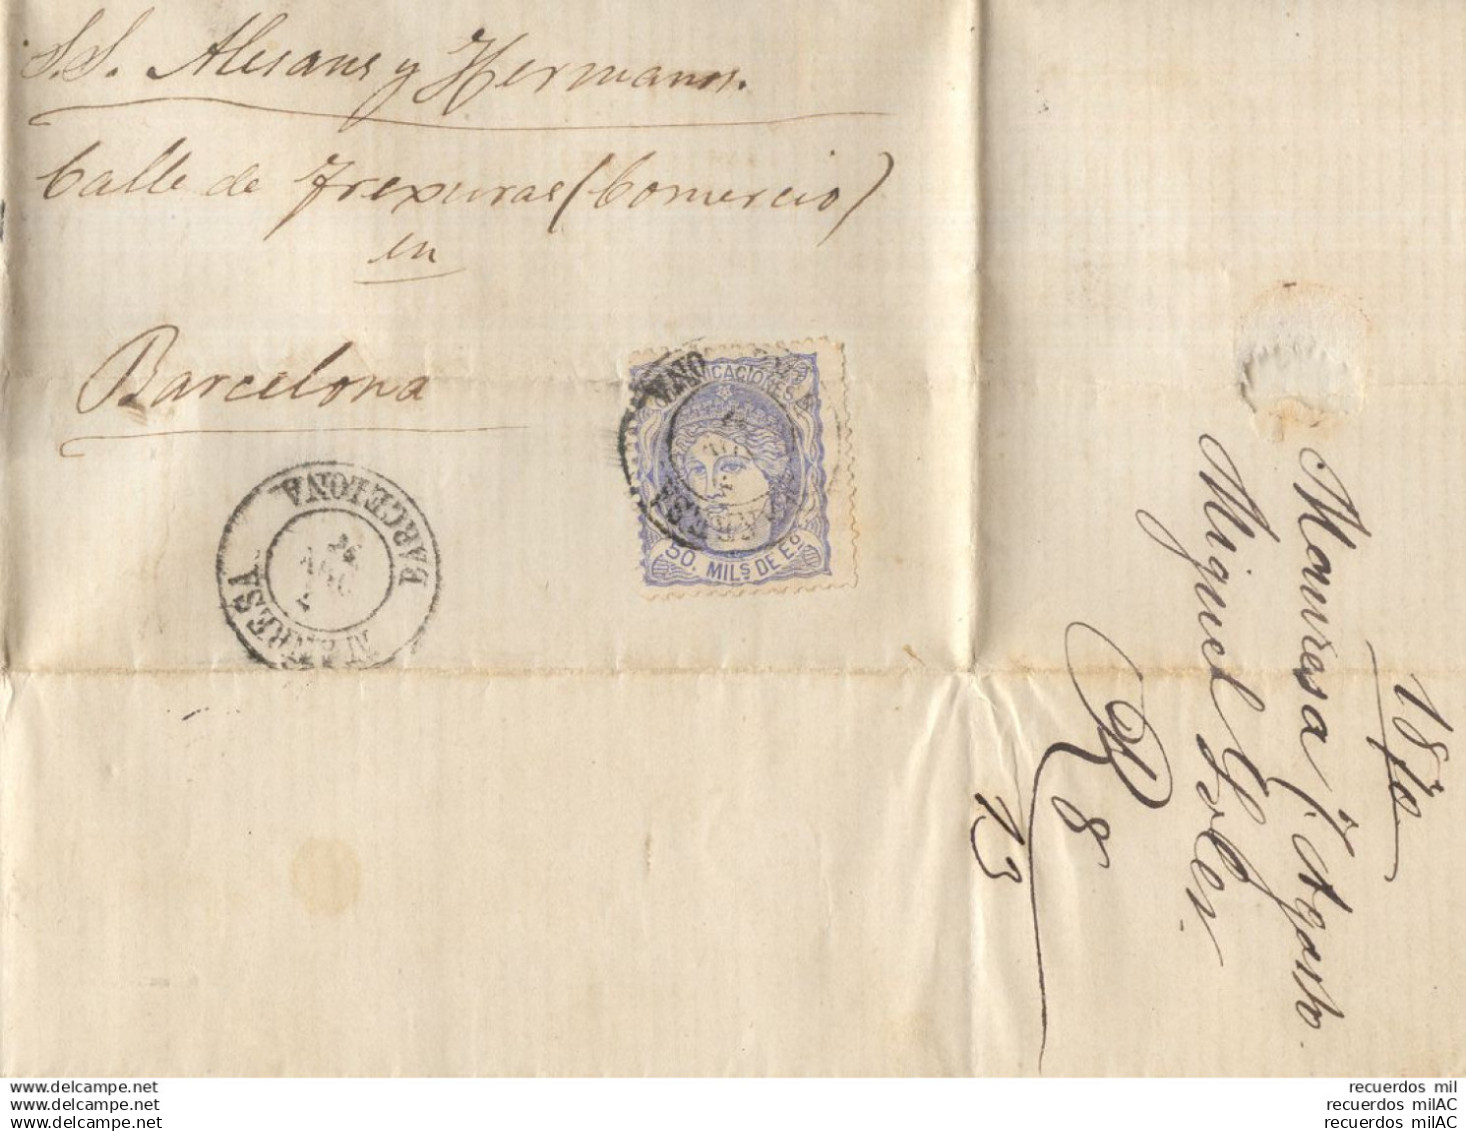 S.S. Alesans y Hermanos.
Calle de Frexuras (Comercio)
en
Barcelona
COMUNICACIONES
50. MILS DE Eo
MANRESA
BARCELONA
MANRESA
BARCELONA
AGO
1870
Manresa 1º Agosto
Miguel Soler.
R 8
13
www.delcampe.net
www.delcampe.net
www.delcampe.net
recuerdos mil
recuerdos milAC
recuerdos milAC